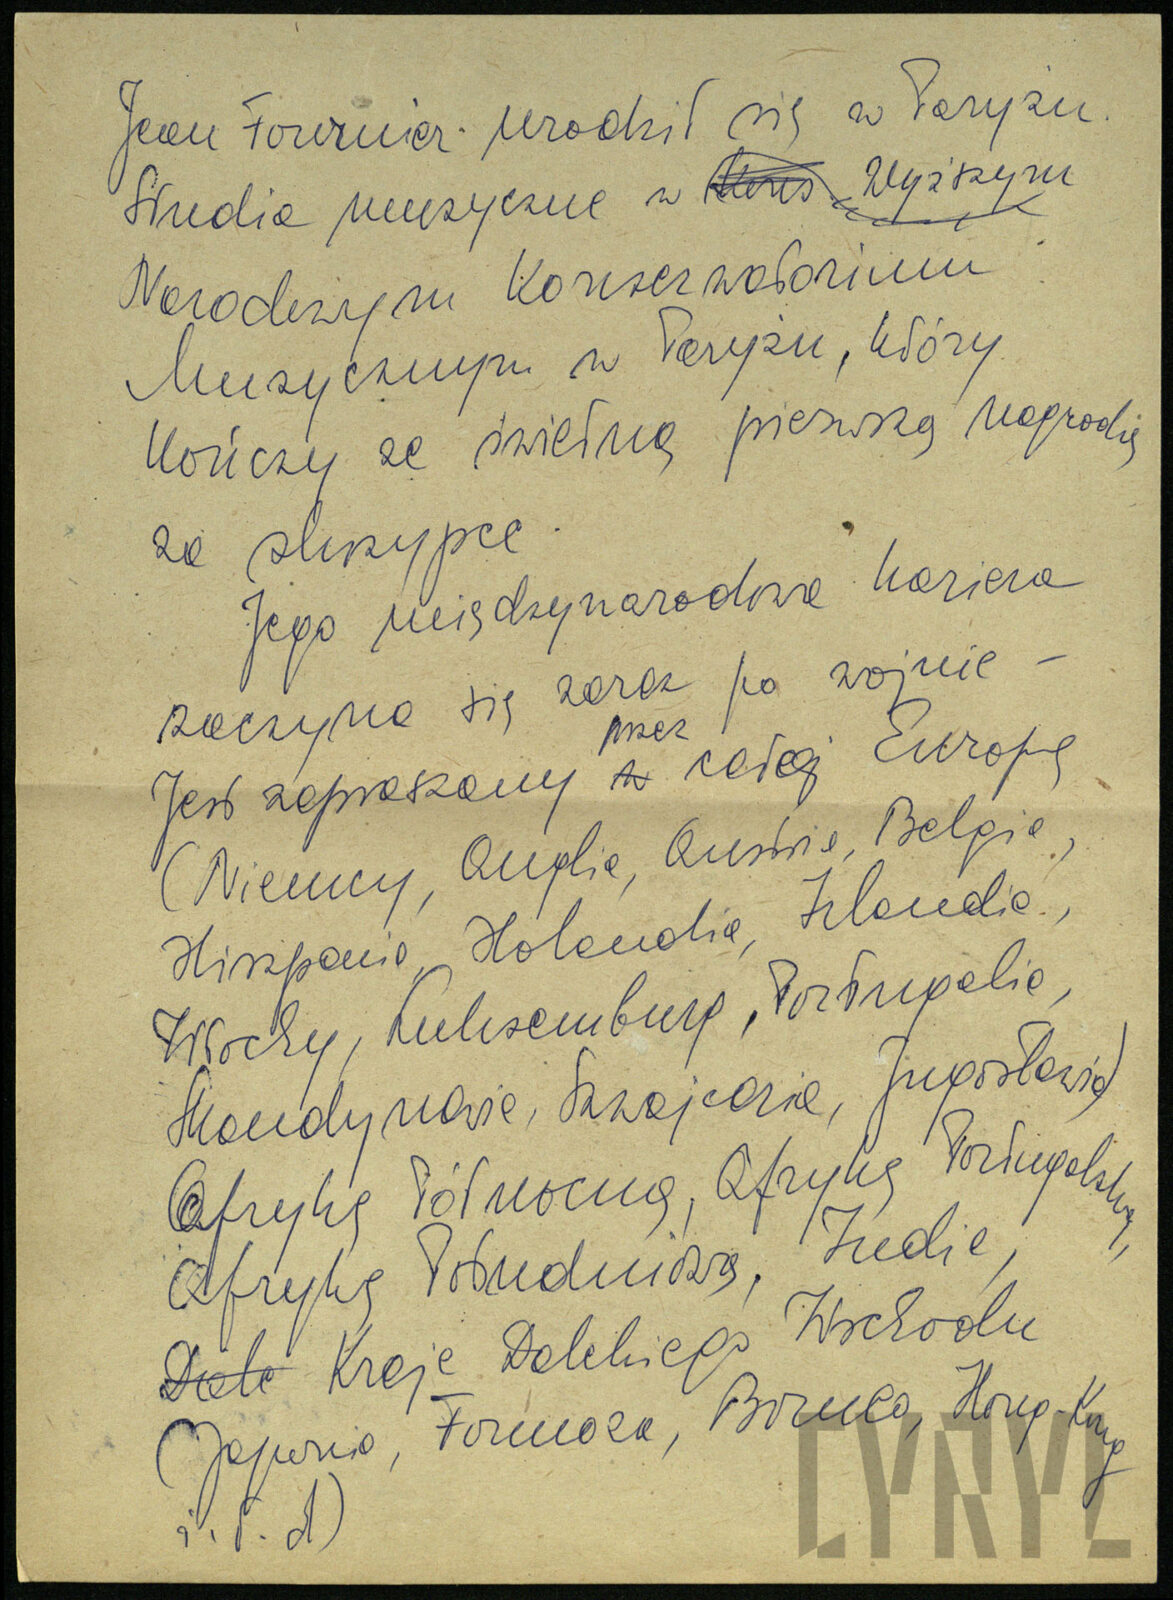 Jean Fournier urodził się w Paryżu.
Studia muzyczne w Wyższym
Narodowym Konserwatorium
Muzycznym w Paryżu, który
kończy ze świetną pierwszą nagrodą
za skrzypce.
Jego międzynarodowa kariera
zaczyna się zaraz po wojnie –
przez
Jest zapraszany w całą Europę
(Niemcy, Anglia, Austria, Belgia,
Hiszpania, Holandia, Irlandia,
Włochy, Luksemburg, Portugalia,
Skandynawia, Szwajcaria, Jugosławia)
Afrykę Północną, Afrykę Portugalską,
Afrykę Południową, Indie,
Dale Kraje Dalekiego Wschodu
(Japonia, Formoza, Borneo, Hong-Kong
i.t.d)
CYRYL